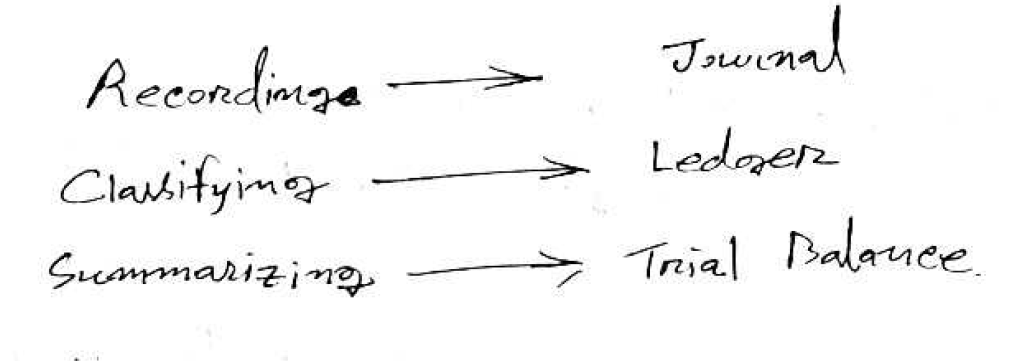 Recording → Journal
Classifying → Ledger
Summarizing → Trial Balance.